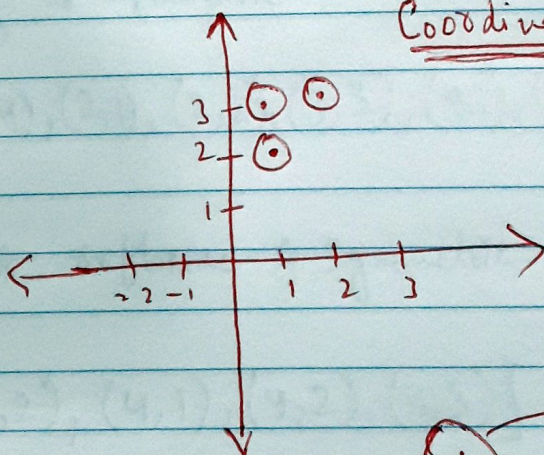 Coordin
3
2
1
-2 -1 1 2 3